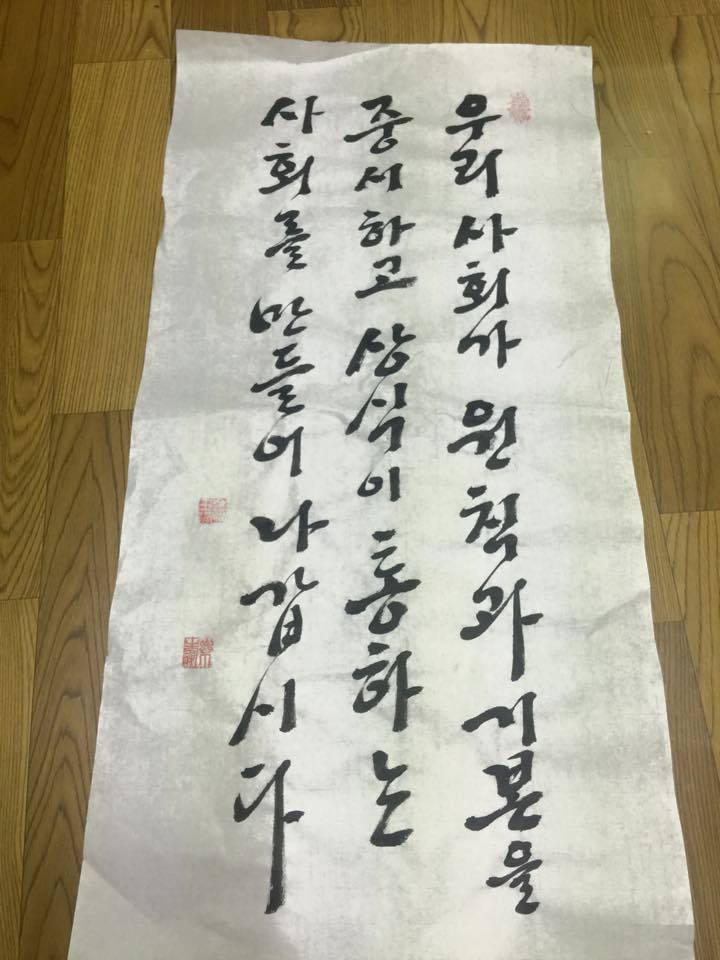 우리 사회가 원칙과 기본을
중시하고 상식이 통하는
사회를 만들어 나갑시다